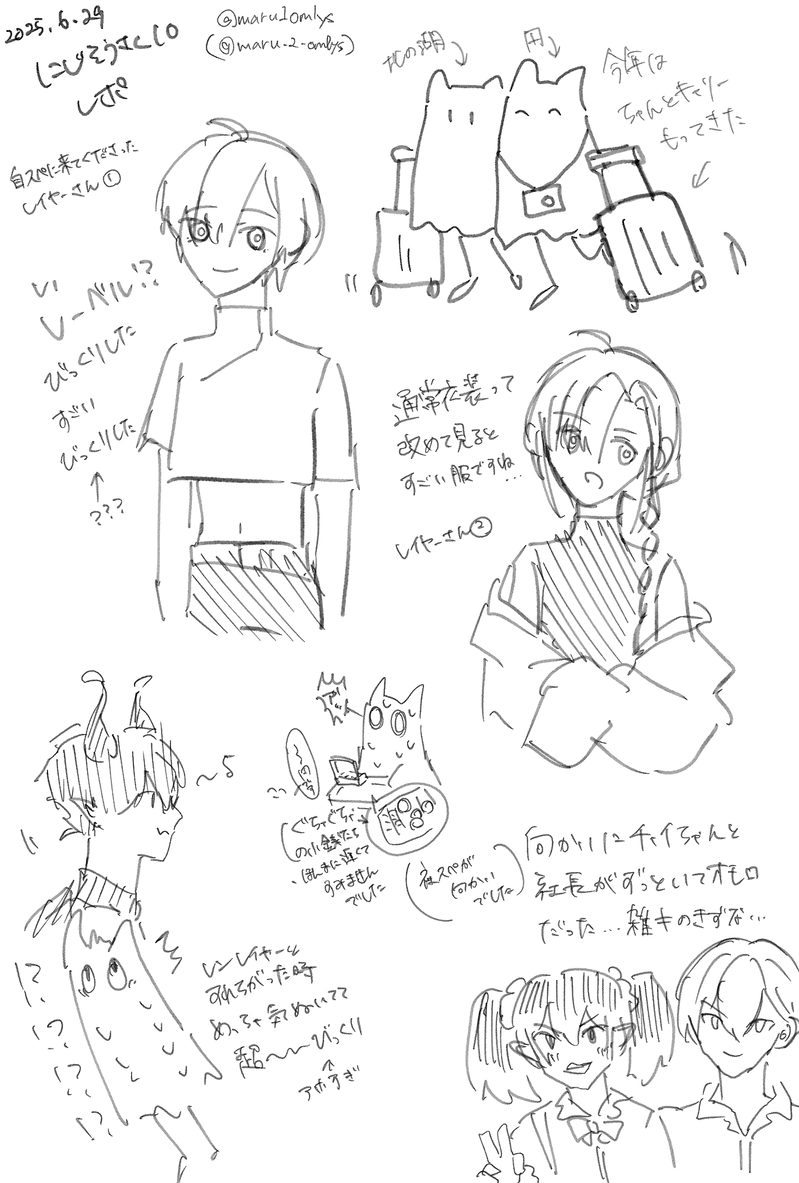 2025.6.29
にじそうさく10
レポ
@maru1omlys
(@maru-2-omlys)
北の湖
円
今年は
ちゃんとキャリー
もってきた
自スペに来てくださった
レイヤーさん①
い
レーベル!?
びっくりした
すごい
びっくりした
↑
???
通常衣装って
改めて見ると
すごい服ですね…
レイヤーさん②
ぐちゃぐちゃ
の小銭たち
ほんまに遅くて
すみません
でした
(社スペが
向かい
でした)
向かいにチャイちゃんと
社長がずっといてオモロ
だった…雑キのきずな…
レンレイヤーと
すれちがった時
めっちゃ気ぬいてて
超〜〜びっくり
↑
アホすぎ
!?
!?
!?
!?